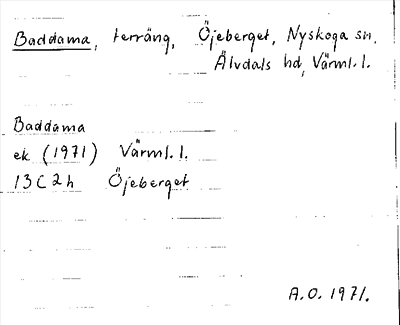 Baddama, terräng, Öjeberget, Nyskoga sn,
Älvdals hd, Värml. l.
Baddama
ek (1971) Värml. l.
13C2h Öjeberget
A.O. 1971.